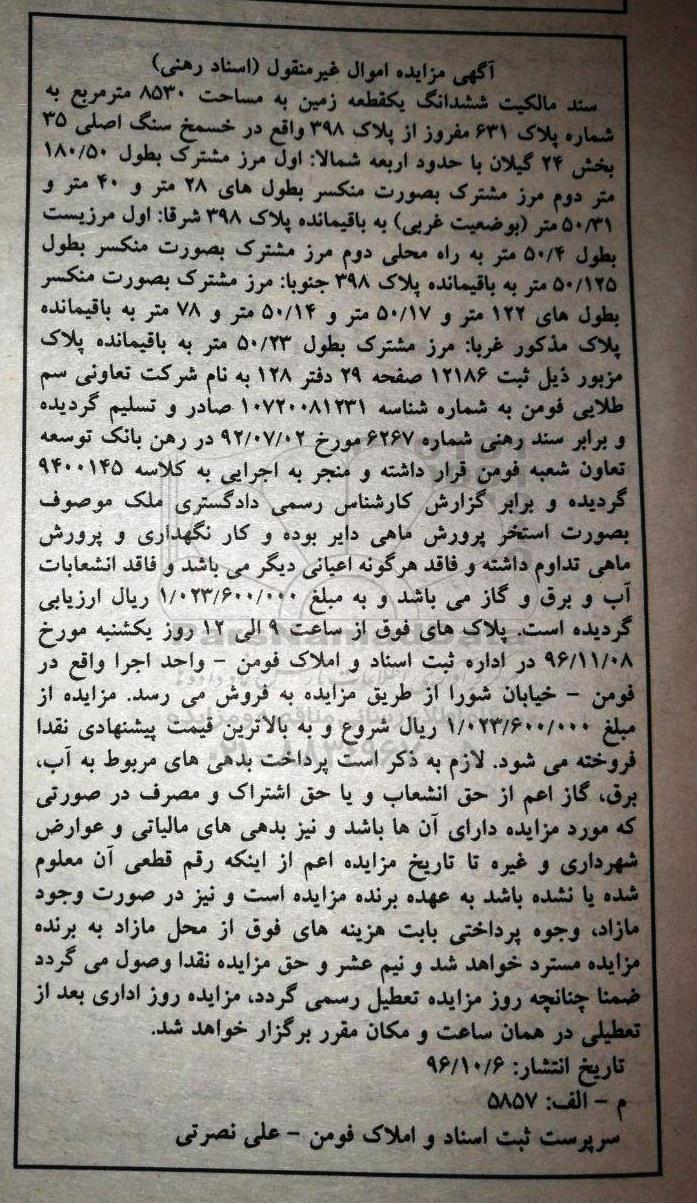 آگهی مزایده اموال غیرمنقول (اسناد رهنی)
سند مالکیت ششدانگ یکقطعه زمین به مساحت ۸۵۳۰ مترمربع به
شماره پلاک ۶۳۱ مفروز از پلاک ۳۹۸ واقع در خسمخ سنگ اصلی ۳۵
بخش ۲۴ گیلان با حدود اربعه شمالا: اول مرز مشترک بطول ۱۸۰/۵۰
متر دوم مرز مشترک بصورت منکسر بطول های ۲۸ متر و ۴۰ متر و
۵۰/۳۱ متر (بوضعیت غربی) به باقیمانده پلاک ۳۹۸ شرقا: اول مرزیست
بطول ۵۰/۴ متر به راه محلی دوم مرز مشترک بصورت منکسر بطول
۵۰/۱۲۵ متر به باقیمانده پلاک ۳۹۸ جنوبا: مرز مشترک بصورت منکسر
بطول های ۱۲۲ متر و ۵۰/۱۷ متر و ۵۰/۱۴ متر و ۷۸ متر به باقیمانده
پلاک مذکور غربا: مرز مشترک بطول ۵۰/۲۳ متر به باقیمانده پلاک
مزبور ذیل ثبت ۱۲۱۸۶ صفحه ۲۹ دفتر ۱۲۸ به نام شرکت تعاونی سم
طلایی فومن به شماره شناسه ۱۰۷۲۰۰۸۱۲۳۱ صادر و تسلیم گردیده
و برابر سند رهنی شماره ۶۲۶۷ مورخ ۹۲/۰۷/۰۲ در رهن بانک توسعه
تعاون شعبه فومن قرار داشته و منجر به اجرایی به کلاسه ۹۴۰۰۱۴۵
گردیده و برابر گزارش کارشناس رسمی دادگستری ملک موصوف
بصورت استخر پرورش ماهی دایر بوده و کار نگهداری و پرورش
ماهی تداوم داشته و فاقد هرگونه اعیانی دیگر می باشد و فاقد انشعابات
آب و برق و گاز می باشد و به مبلغ ۱/۰۲۳/۶۰۰/۰۰۰ ریال ارزیابی
گردیده است. پلاک های فوق از ساعت ۹ الی ۱۲ روز یکشنبه مورخ
۹۶/۱۱/۰۸ در اداره ثبت اسناد و املاک فومن - واحد اجرا واقع در
فومن - خیابان شورا از طریق مزایده به فروش می رسد. مزایده از
مبلغ ۱/۰۲۳/۶۰۰/۰۰۰ ریال شروع و به بالاترین قیمت پیشنهادی نقدا
فروخته می شود. لازم به ذکر است پرداخت بدهی های مربوط به آب،
برق، گاز اعم از حق انشعاب و یا حق اشتراک و مصرف در صورتی
که مورد مزایده دارای آن ها باشد و نیز بدهی های مالیاتی و عوارض
شهرداری و غیره تا تاریخ مزایده اعم از اینکه رقم قطعی آن معلوم
شده یا نشده باشد به عهده برنده مزایده است و نیز در صورت وجود
مازاد، وجوه پرداختی بابت هزینه های فوق از محل مازاد به برنده
مزایده مسترد خواهد شد و نیم عشر و حق مزایده نقدا وصول می گردد
ضمنا چنانچه روز مزایده تعطیل رسمی گردد، مزایده روز اداری بعد از
تعطیلی در همان ساعت و مکان مقرر برگزار خواهد شد.
تاریخ انتشار: ۹۶/۱۰/۶
م - الف: ۵۸۵۷
سرپرست ثبت اسناد و املاک فومن - علی نصرتی